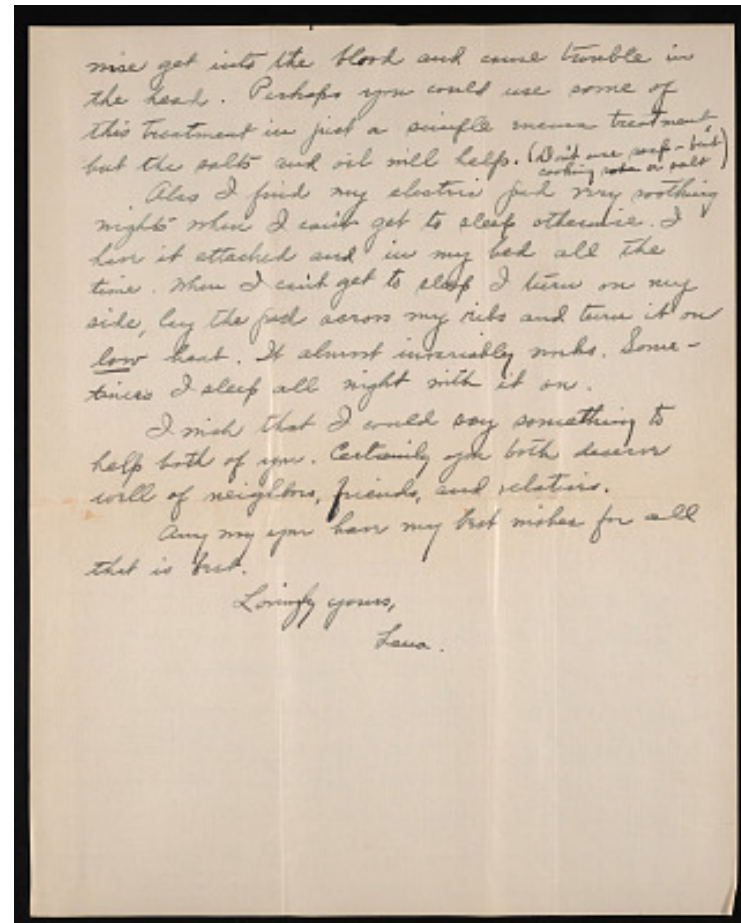 wise get into the blood and cause trouble in
the head. Perhaps you could use some of
this treatment in just a simple enema treatment,
but the salts and oil will help. (Don't use soap - but
cooking soda or salt)
Also I find my electric pad very soothing
nights when I can't get to sleep otherwise. I
have it attached and in my bed all the
time. When I can't get to sleep I turn on my
side, lay the pad across my ribs and turn it on
low heat. It almost invariably works. Some-
times I sleep all night with it on.
I wish that I could say something to
help both of you. Certainly you both deserve
well of neighbors, friends, and relatives.
Any way you have my best wishes for all
that is best.
Lovingly yours,